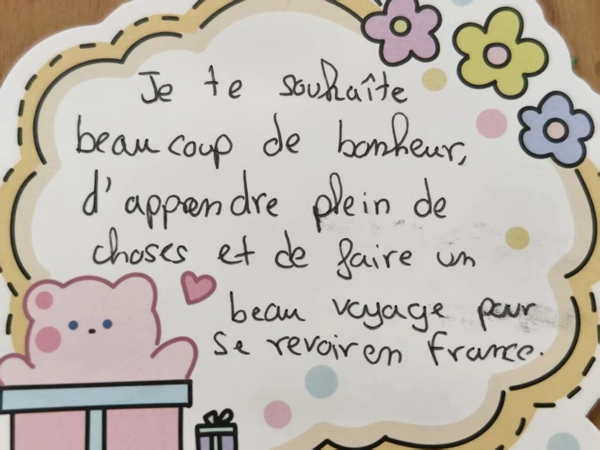 Je te souhaîte
beaucoup de bonheur,
d'apprendre plein de
choses et de faire un
beau voyage pour
se revoir en France.